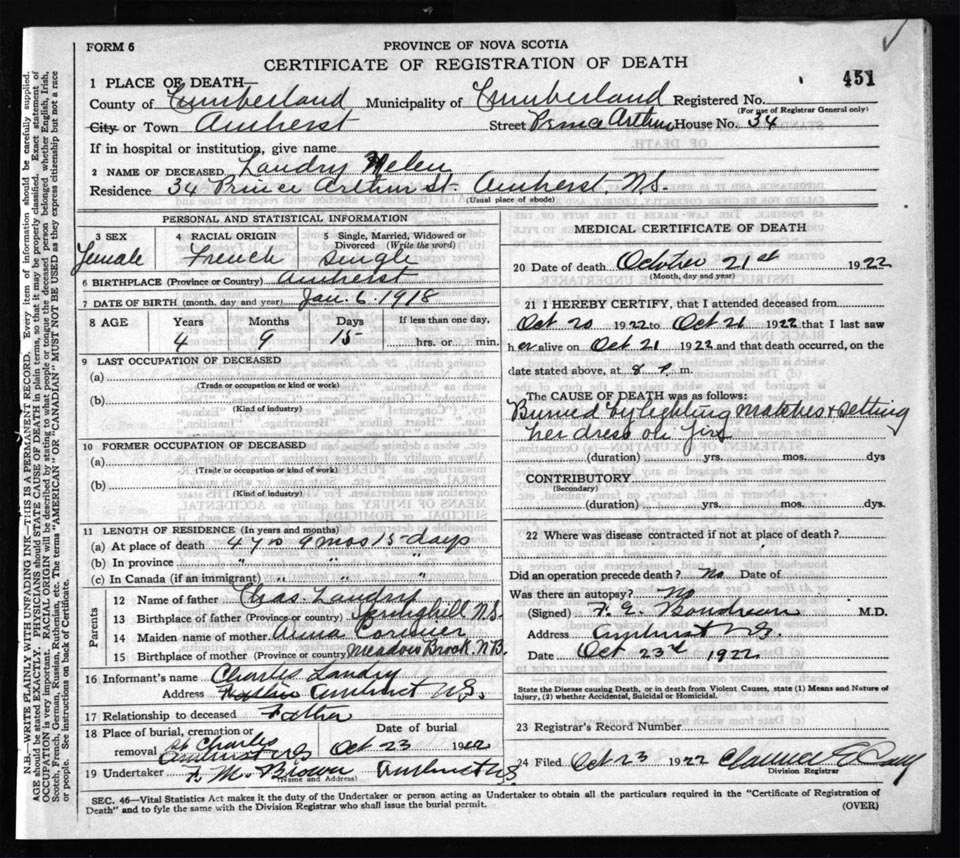 FORM 6
PROVINCE OF NOVA SCOTIA
CERTIFICATE OF REGISTRATION OF DEATH
451
1 PLACE OF DEATH—
County of Cumberland Municipality of Cumberland Registered No.
(For use of Registrar General only)
City or Town Amherst Street Prince Arthur House No. 34
If in hospital or institution, give name
2 NAME OF DECEASED Landry Helen
Residence 34 Prince Arthur St. Amherst N.S.
(Usual place of abode)
PERSONAL AND STATISTICAL INFORMATION
3 SEX 4 RACIAL ORIGIN 5 Single, Married, Widowed or Divorced (Write the word)
Female French Single
6 BIRTHPLACE (Province or Country) Amherst
7 DATE OF BIRTH (month, day and year) Jan. 6. 1918
8 AGE Years Months Days If less than one day,
4 9 15 hrs. or min.
9 LAST OCCUPATION OF DECEASED
(a)
(Trade or occupation or kind or work)
(b)
(Kind of industry)
10 FORMER OCCUPATION OF DECEASED
(a)
(Trade or occupation or kind of work)
(b)
(Kind of industry)
11 LENGTH OF RESIDENCE (In years and months)
(a) At place of death 4 yrs 9 mos 15 days
(b) In province " " "
(c) In Canada (if an immigrant) " " "
Parents
12 Name of father Chas. Landry
13 Birthplace of father (Province or country) Springhill N.S.
14 Maiden name of mother Anna Cormier
15 Birthplace of mother (Province or country) Meadow Brook. N.B.
16 Informant's name Charles Landry
Address Amherst N.S.
17 Relationship to deceased Father
18 Place of burial, cremation or removal Date of burial
St Charles
Amherst N.S Oct 23 1922
19 Undertaker F. M. Brown Amherst N.S
(Name and Address)
MEDICAL CERTIFICATE OF DEATH
20 Date of death October 21st 1922
(Month, day and year)
21 I HEREBY CERTIFY, that I attended deceased from
Oct 20 1922 to Oct 21 1922 that I last saw
her alive on Oct 21 1922 and that death occurred, on the
date stated above, at 8 P. m.
The CAUSE OF DEATH was as follows:
Burned by lighting matches & setting
her dress on fire
(duration) yrs. mos. dys
CONTRIBUTORY
(Secondary)
(duration) yrs. mos. dys.
22 Where was disease contracted if not at place of death?
Did an operation precede death? No Date of
Was there an autopsy? No
(Signed) F. E. Boudreau M.D.
Address Amherst N.S.
Date Oct 23rd 1922.
State the Disease causing Death, or in death from Violent Causes, state (1) Means and Nature of
Injury, (2) whether Accidental, Suicidal or Homicidal.
23 Registrar's Record Number
24 Filed Oct 23 1922 Clarence
Division Registrar
SEC. 46—Vital Statistics Act makes it the duty of the Undertaker or person acting as Undertaker to obtain all the particulars required in the "Certificate of Registration of
Death" and to fyle the same with the Division Registrar who shall issue the burial permit.
(OVER)
N.B.—WRITE PLAINLY WITH UNFADING INK—THIS IS A PERMANENT RECORD. Every item of information should be carefully supplied.
AGE should be stated EXACTLY. PHYSICIANS should STATE CAUSE OF DEATH in plain terms, so that it may be properly classified. Exact statement of
OCCUPATION is very important. RACIAL ORIGIN will be described by stating to what people or tongue the deceased person belonged, whether English, Irish,
Scotch, French, German, Russian, Ruthenian, etc. The terms "AMERICAN" OR "CANADIAN" MUST NOT BE USED as they express citizenship but not a race
or people. See instructions on back of Certificate.